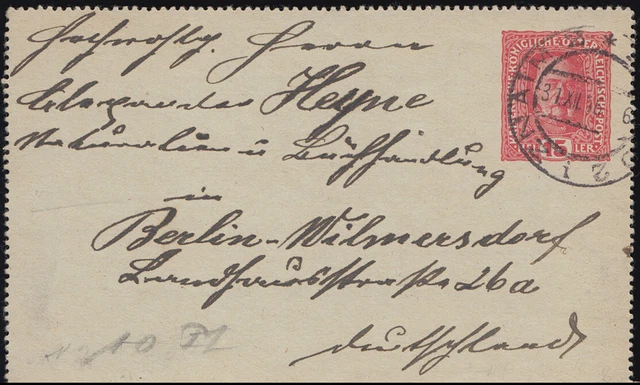 Hochwohlg. Herrn
Alexander Heyne
Naturalien u Buchhandlung
in
Berlin-Wilmersdorf
Landhausstraße 26a
Deutschland
KÖNIGLICHE ÖSTERREICHISCHE POST
15
LER
31 XII